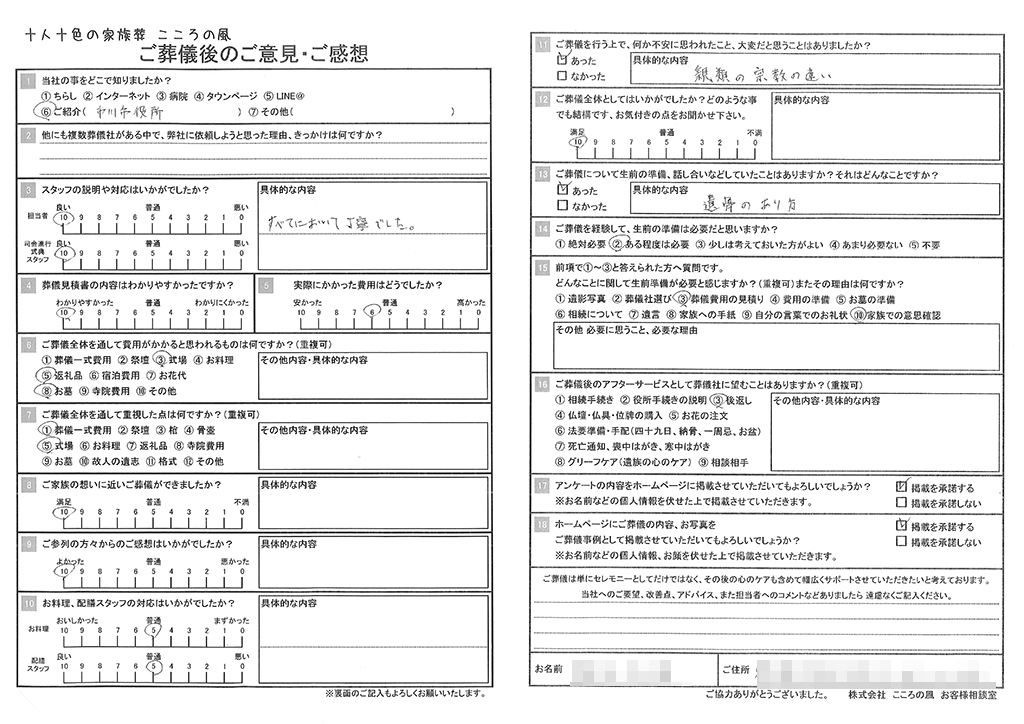 十人十色の家族葬 こころの風
ご葬儀後のご意見・ご感想
1 当社の事をどこで知りましたか？
①ちらし ②インターネット ③病院 ④タウンページ ⑤LINE@
⑥ご紹介（ 市川市役所 ） ⑦その他（ ）
2 他にも複数葬儀社がある中で、弊社に依頼しようと思った理由、きっかけは何ですか？
3 スタッフの説明や対応はいかがでしたか？
具体的な内容
良い 普通 悪い
担当者 10 9 8 7 6 5 4 3 2 1 0
すべてにおいて丁寧でした。
司会進行
式典
スタッフ
良い 普通 悪い
10 9 8 7 6 5 4 3 2 1 0
4 葬儀見積書の内容はわかりやすかったですか？
わかりやすかった 普通 わかりにくかった
10 9 8 7 6 5 4 3 2 1 0
5 実際にかかった費用はどうでしたか？
安かった 普通 高かった
10 9 8 7 6 5 4 3 2 1 0
6 ご葬儀全体を通して費用がかかると思われるものは何ですか？（重複可）
①葬儀一式費用 ②祭壇 ③式場 ④お料理
⑤返礼品 ⑥宿泊費用 ⑦お花代
⑧お墓 ⑨寺院費用 ⑩その他
その他内容・具体的な内容
7 ご葬儀全体を通して重視した点は何ですか？（重複可）
①葬儀一式費用 ②祭壇 ③棺 ④骨壷
⑤式場 ⑥お料理 ⑦返礼品 ⑧寺院費用
⑨お墓 ⑩故人の遺志 ⑪格式 ⑫その他
その他内容・具体的な内容
8 ご家族の想いに近いご葬儀ができましたか？
満足 普通 不満
10 9 8 7 6 5 4 3 2 1 0
具体的な内容
9 ご参列の方々からのご感想はいかがでしたか？
よかった 普通 悪かった
10 9 8 7 6 5 4 3 2 1 0
具体的な内容
10 お料理、配膳スタッフの対応はいかがでしたか？
おいしかった 普通 まずかった
お料理 10 9 8 7 6 5 4 3 2 1 0
良い 普通 悪い
配膳
スタッフ
10 9 8 7 6 5 4 3 2 1 0
具体的な内容
※裏面のご記入もよろしくお願いいたします。
11 ご葬儀を行う上で、何か不安に思われたこと、大変だと思うことはありましたか？
あった
なかった
具体的な内容
親類の宗教の違い
12 ご葬儀全体としてはいかがでしたか？どのような事
でも結構です、お気付きの点をお聞かせ下さい。
満足 普通 不満
10 9 8 7 6 5 4 3 2 1 0
具体的な内容
13 ご葬儀について生前の準備、話し合いなどしていたことはありますか？それはどんなことですか？
あった
なかった
具体的な内容
遺骨のあり方
14 ご葬儀を経験して、生前の準備は必要だと思いますか？
①絶対必要 ②ある程度は必要 ③少しは考えておいた方がよい ④あまり必要ない ⑤不要
15 前項で①～③と答えられた方へ質問です。
どんなことに関して生前準備が必要と感じますか？（重複可）またその理由は何ですか？
①遺影写真 ②葬儀社選び ③葬儀費用の見積り ④費用の準備 ⑤お墓の準備
⑥相続について ⑦遺言 ⑧家族への手紙 ⑨自分の言葉でのお礼状 ⑩家族での意思確認
その他 必要に思うこと、必要な理由
16 ご葬儀後のアフターサービスとして葬儀社に望むことはありますか？（重複可）
①相続手続き ②役所手続きの説明 ③後返し
④仏壇・仏具・位牌の購入 ⑤お花の注文
⑥法要準備・手配（四十九日、納骨、一周忌、お盆）
⑦死亡通知、喪中はがき、寒中はがき
⑧グリーフケア（遺族の心のケア） ⑨相談相手
その他内容・具体的な内容
17 アンケートの内容をホームページに掲載させていただいてもよろしいでしょうか？
※お名前などの個人情報を伏せた上で掲載させていただきます。
掲載を承諾する
掲載を承諾しない
18 ホームページにご葬儀の内容、お写真を
ご葬儀事例として掲載させていただいてもよろしいでしょうか？
※お名前などの個人情報、お顔を伏せた上で掲載させていただきます。
掲載を承諾する
掲載を承諾しない
ご葬儀は単にセレモニーとしてだけではなく、その後の心のケアも含めて幅広くサポートさせていただきたいと考えております。
当社へのご要望、改善点、アドバイス、また担当者へのコメントなどありましたら 遠慮なくご記入ください。
お名前 ご住所
ご協力ありがとうございました。 株式会社 こころの風 お客様相談室